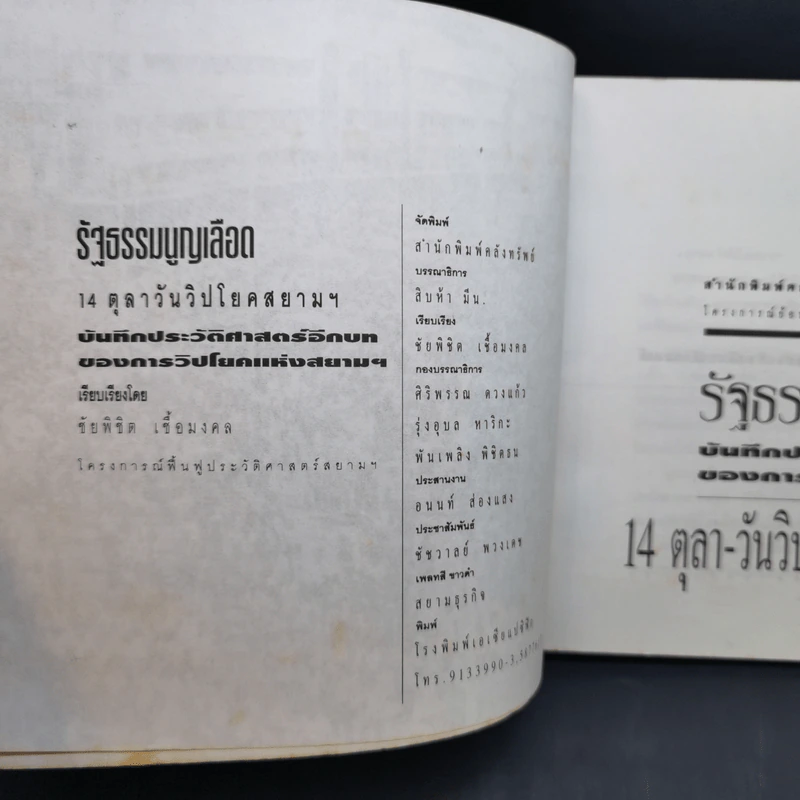 รัฐธรรมนูญเลือด
14 ตุลาวันวิปโยคสยามฯ
บันทึกประวัติศาสตร์อีกบท
ของการวิปโยคแห่งสยามฯ
เรียบเรียงโดย
ชัยพิชิต เชื้อมงคล
โครงการณ์ฟื้นฟูประวัติศาสตร์สยามฯ
จัดพิมพ์
สำนักพิมพ์คลังทรัพย์
บรรณาธิการ
สิบห้า มีน.
เรียบเรียง
ชัยพิชิต เชื้อมงคล
กองบรรณาธิการ
ศิริพรรณ ดวงแก้ว
รุ่งอุบล หาริกะ
พันเพลิง พิชิตธน
ประสานงาน
อนนท์ ส่องแสง
ประชาสัมพันธ์
ชัชวาลย์ พวงเดช
เพลทสี ขาวดำ
สยามธุรกิจ
พิมพ์
โรงพิมพ์เอเซียแปซิฟิค
โทร.9133990-3,
สำนักพิมพ์
โครงการณ์
รัฐธร
บันทึกป
ของการ
14 ตุลา-วันวิป